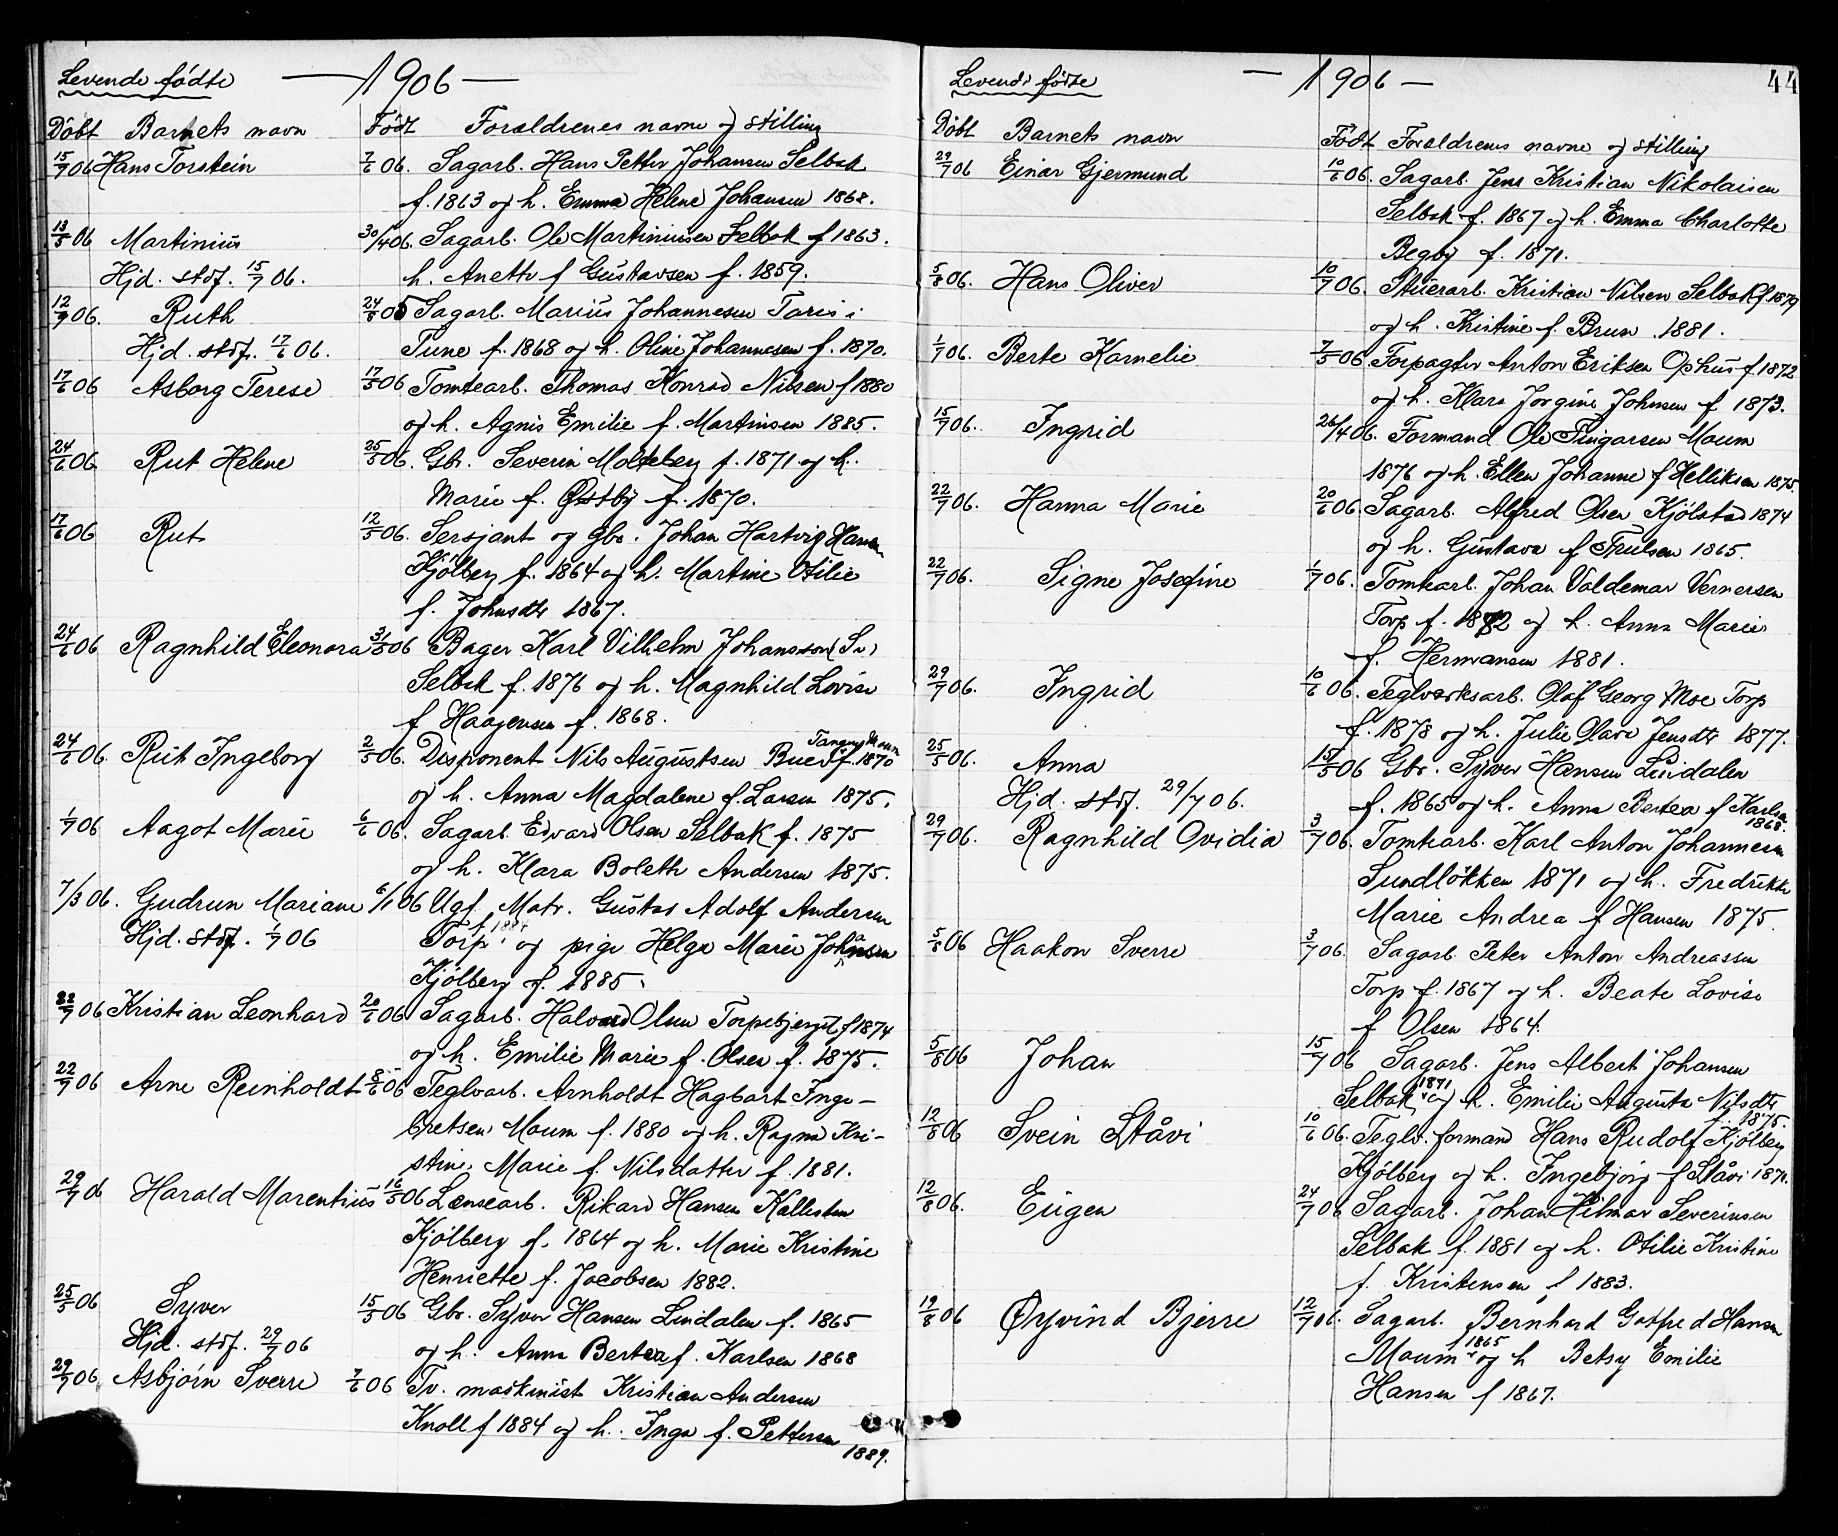 Levende födte — 1906 —
Döbt Barnets navn Födt Forældrenes navne og stilling
15/7 06 Hans Torstein 7/6 06. Sagarb. Hans Petter Johansen Selbak
f. 1863 og h. Emma Helene Johansen 1868.
13/5 06 Martinius 30/4 06. Sagarb. Ole Martiniusen Selbak f 1863.
Hjd. stdf. 15/7 06. h. Anette f Gustavsen f. 1859.
12/9 06. Ruth 24/8 05 Sagarb. Marius Johannesen Taris i
Hjd. stdf. 17/6 06. Tune f. 1868 og h. Oline Johannesen f. 1870.
17/6 06 Asborg Terese 17/5 06 Tomtearb. Thomas Konrad Nilsen f 1880
og h. Agnis Emilie f. Martinsen 1885.
24/6 06. Rut Helene 25/5 06. Gbr. Severin Molteberg f. 1871 og h.
Marie f. Østby f. 1870.
17/6 06 Rut 12/5 06. Sersjant og Gbr. Johan Hartvig Hansen
Kjölberg f. 1864 og h. Martine Otilie
f. Johnsdtr 1867.
24/6 06 Ragnhild Eleonora 31/5 06 Bager Karl Vilhelm Johansson (Sv)
Selbak f. 1876 og h. Magnhild Lovise
f Haagensen f. 1868.
24/6 06. Rut Ingeborg 2/5 06. Disponent Nils Augustsen Bue f. 1870
og h. Anna Magdalene f. Larsen 1875.
1/7 06 Aagot Marie 6/6 06. Sagarb. Edvard Olsen Selbak f. 1875
og h. Klara Bolette Andersen 1875.
7/3 06. Gudrun Mariane 6/1 06 Ugf. Matr. Gustav Adolf Andersen
Hjd. stdf. 1/7 06 Torp f. 1884 og pige Helga Marie Johansen
Kjölberg f. 1885.
22/7 06 Kristian Leonhard 20/6 06 Sagarb. Halvard Olsen Torpebjerget f 1874
og h. Emilie Marie f. Olsen f. 1875.
22/7 06 Arne Reinholdt 8/6 06 Teglvarb. Arnholdt Hagbart Inge-
bretsen Moum f. 1880 og h. Ragna Kri-
stine Marie f. Nilsdatter f. 1881.
29/7 06 Harald Marentius 16/5 06 Lensearb. Rikard Hansen Kallesten
Kjölberg f. 1864 og h. Marie Kristine
Henriette f. Jacobsen 1882.
25/5 06 Syver 15/5 06 Gbr. Syver Hansen Lindalen f. 1865
Hjd. stdf. 29/7 06 og h. Anna Bertea f. Karlsen 1868
29/7 06 Asbjörn Sverre 7/6 06 Tv. maskinist Kristian Andersen
Knoll f 1884 og h. Inga f. Pettersen
1889.
Levende födte — 1906 — 44
Döbt Barnets navn Födt Forældrenes navne og stilling
29/7 06 Einar Gjermund 10/6 06. Sagarb. Jens Kristian Nikolaisen
Selbak f. 1867 og h. Emma Charlotte
Begby f. 1871.
5/8 06. Hans Oliver 10/7 06. Stuerarb. Kristian Nilsen Selbak f 1879
og h. Kristine f. Brun 1881.
1/7 06. Berte Kornelie 7/5 06 Forpagter Anton Eriksen Ophus f. 1872
og h. Klara Jorgine Johnsen f 1873.
15/7 06. Ingrid 26/4 06. Formand Ole Tingarsen Moum
1876 og h. Ellen Johanne f Helliksen 1875.
22/7 06. Hanna Marie 20/6 06 Sagarb. Alfred Olsen Kjölstad 1874
og h. Gustava f Trulsen 1865.
22/7 06. Signe Josefine 1/7 06. Tomtearb. Johan Valdemar Vernersen
Torp f. 1882 og h. Anna Marie
f. Hermansen 1881.
29/7 06. Ingrid 10/6 06. Teglverksarb. Olaf Georg Moe Torp
f. 1878 og h. Julie Olava Jensdtr 1877.
25/5 06. Anna 15/5 06 Gbr. Syver Hansen Lindalen
Hjd. stdf. 29/7 06. f. 1865 og h. Anna Bertea f Karlsen
1868.
29/7 06. Ragnhild Ovidia 3/7 06. Tomtearb. Karl Anton Johannesen
Sundlökken 1871 og h. Fredrikke
Marie Andrea f Hansen 1875.
5/8 06 Haakon Sverre 3/7 06. Sagarb. Peter Anton Andreassen
Torp f. 1867 og h. Beate Lovise
f Olsen 1864.
5/8 06 Johan 15/7 06 Sagarb. Jens Albert Johansen
Selbak 1871 og h. Emilie Augusta Nilsdtr
1875.
12/8 06 Svein Ståvi 10/6 06. Teglv. formand Hans Rudolf Kjölberg
Kjölberg og h. Ingebjörg f Ståvi 1871.
12/8 06. Eugen 24/7 06 Sagarb. Johan Hilmar Severinsen
Selbak f. 1881 og h. Otilie Kristine
f. Kristensen f 1883.
19/8 06 Øyvind Bjerre 12/7 06. Sagarb. Bernhard Gotfred Hansen
Moum 1865 og h Betsy Emilie
Hansen f 1867.